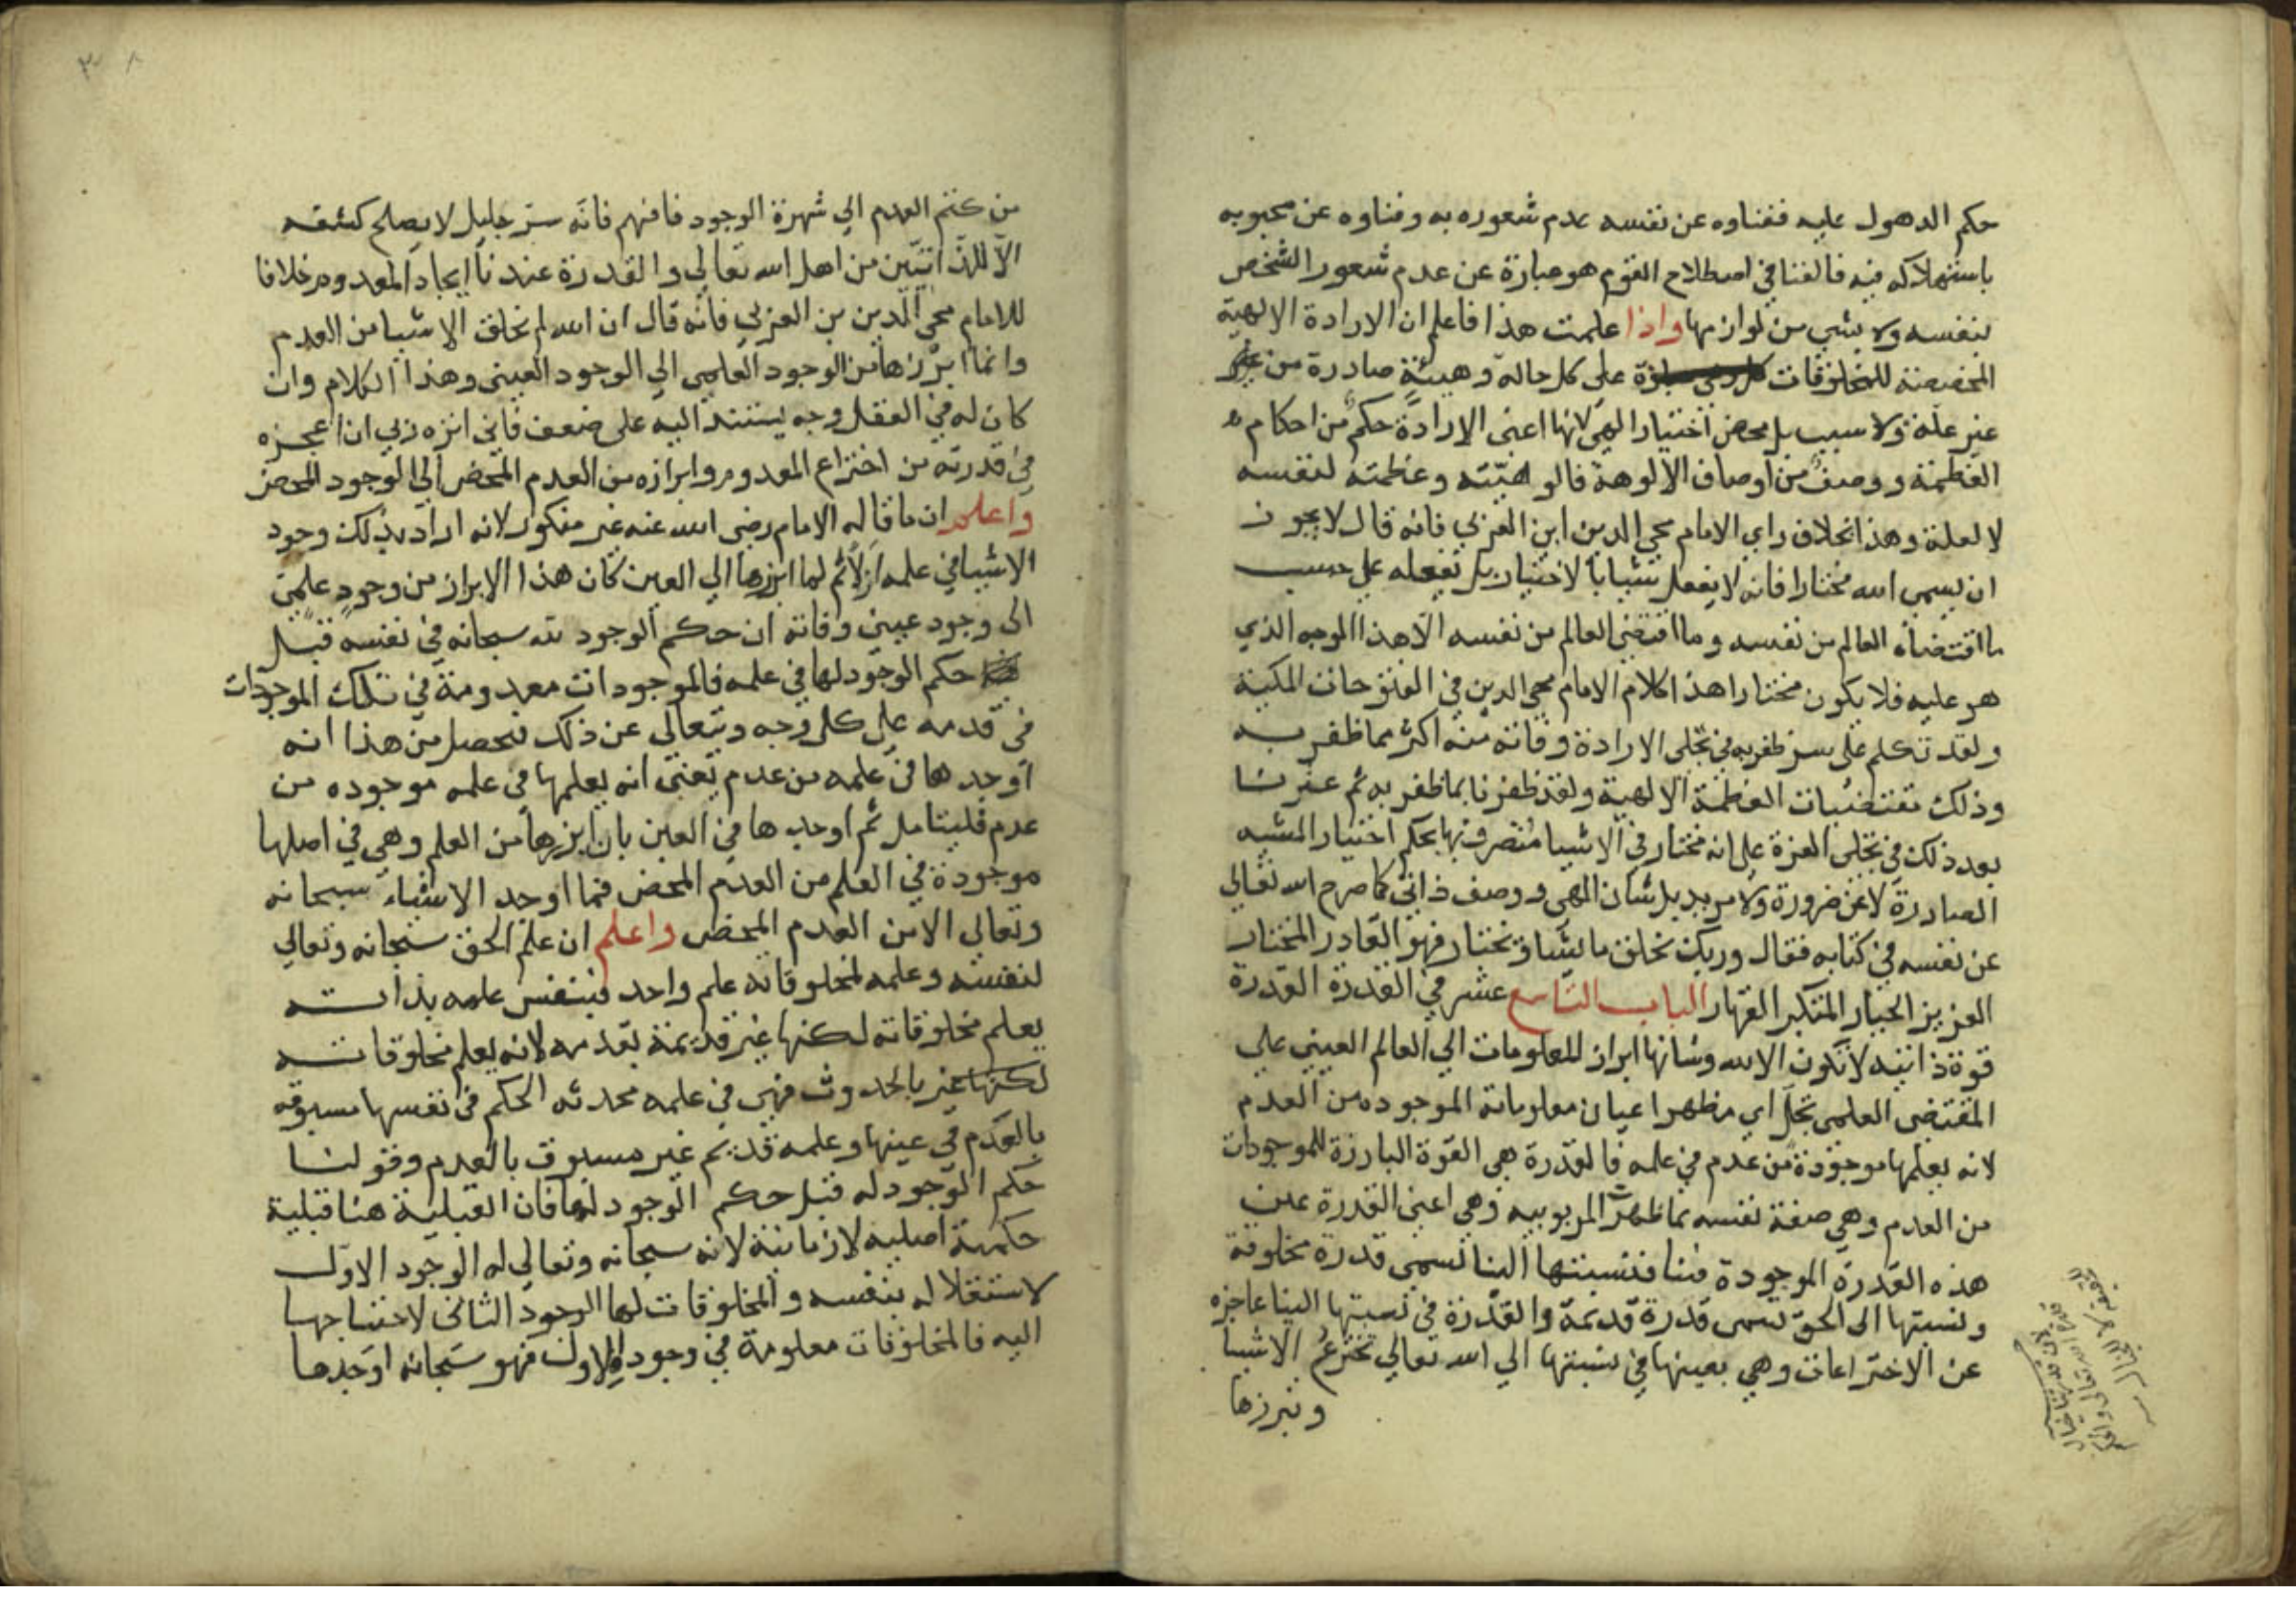 حكم الدهول عليه ففناوه عن نفسه عدم شعوره به وفناوه عن محبوبه
باستهلاكه فيه فالفنا في اصطلاح القوم هو عبارة عن عدم شعور الشخص
بنفسه ولا بشي من لوازمها واذا علمت هذا فاعلم ان الارادة الالهية
المخصصة للمخلوقات على كل حالة وهيئة صادرة من غير
غير علة ولا سبب بل محض اختيار الهي لانها اعني الارادة حكم من احكام
العظمة ووصف من اوصاف الالوهة فالوهيته وعظمته لنفسه
لا لعلة وهذا بخلاف راي الامام محي الدين ابن العربي فانه قال لا يجوز
ان يسمى الله مختارا فانه لا يفعل شيا بالاختيار بل يفعله على حسب
ما اقتضاه العالم من نفسه وما اقتضى العالم من نفسه الا هذا الوجه الذي
هو عليه فلا يكون مختارا هذا كلام الامام محي الدين في الفتوحات المكية
ولقد تكلم على سر ظفر به في تجلي الارادة وفاته منه اكثر مما ظفر به
وذلك مقتضيات العظمة الالهية ولقد ظفرنا بما ظفر به ثم عثرنا
بعد ذلك في تجلي العزة على انه مختار في الاشيا متصرف بها بحكم اختيار المشيه
الصادرة لا عن ضرورة ولا مريد بل شان الهي ووصف ذاتي كما صرح الله تعالي
عن نفسه في كتابه فقال وربك يخلق ما يشا ويختار فهو القادر المختار
العزيز الجبار المتكبر القهار الباب التاسع عشر في القدرة القدرة
قوة ذاتيه لا تكون الا لله وشانها ابراز المعلومات الي العالم العيني على
المقتضى العلمي تجل اي مظهر اعيان معلوماته الموجوده من العدم
لانه يعلمها موجودة من عدم في علمه فالقدرة هي القوة البارزة للموجودات
من العدم وهي صفة نفسه بما ظهرت الربوبيه وهي اعني القدرة عين
هذه القدرة الموجودة فينا فنسبتها الينا تسمى قدرة مخلوقة
ونسبتها الى الحق تسمى قدرة قديمة والقدرة في نسبتها الينا عاجزه
عن الاختراعات وهي بعينها في نسبتها الي الله تعالي تخترع الاشيا
وتبرزها
من كتم العدم الي شهرة الوجود فافهم فانه سر جليل لا يصلح كشفه
الا للذاتيين من اهل الله تعالي والقدرة عندنا ايجاد المعدوم خلافا
للامام محي الدين بن العربي فانه قال ان الله لم يخلق الاشيا من العدم
وانما ابرزها من الوجود العلمي الي الوجود العيني وهذا الكلام وان
كان له في العقل وجه يستند اليه على ضعف فاني انزه ربي ان اعجزه
في قدرته من اختراع المعدوم وابرازه من العدم المحض الي الوجود المحض
واعلم ان ما قاله الامام رضي الله عنه غير منكور لانه اراد بذلك وجود
الاشيا في علمه ازلا ثم لما ابرزها الي العين كان هذا الابراز من وجود علمي
الى وجود عيني وفاته ان حكم الوجود لله سبحانه في نفسه قبل
حكم الوجود لها في علمه فالموجودات معدومة في تلك الموجودات
في قدمه على كل وجه ويتعالى عن ذلك فحصل من هذا انه
اوجدها في علمه من عدم يعني انه يعلمها في علمه موجوده من
عدم فليتامل ثم اوجدها في العين بان ابرزها من العلم وهي في اصلها
موجودة في العلم من العدم المحض فما اوجد الاشياء سبحانه
وتعالي الا من العدم المحض واعلم ان علم الحق سبحانه وتعالي
لنفسه وعلمه لمخلوقاته علم واحد فبنفس علمه بذاته
يعلم مخلوقاته لكنها غير قديمة بقدمه لانه يعلم مخلوقاته
لكنها غير بالحدوث فهي في علمه محدثه الحكم في نفسها مسبوقه
بالعدم في عينها وعلمه قديم غير مسبوق بالعدم وقولنا
حكم الوجود له قبل حكم الوجود لها فان القبلية هنا قبلية
حكمية اصلية لا زمانية لانه سبحانه وتعالي له الوجود الاول
لاستقلاله بنفسه والمخلوقات لها الوجود الثاني لاحتياجها
اليه فالمخلوقات معلومة في وجوده الاول فهو سبحانه اوجدها